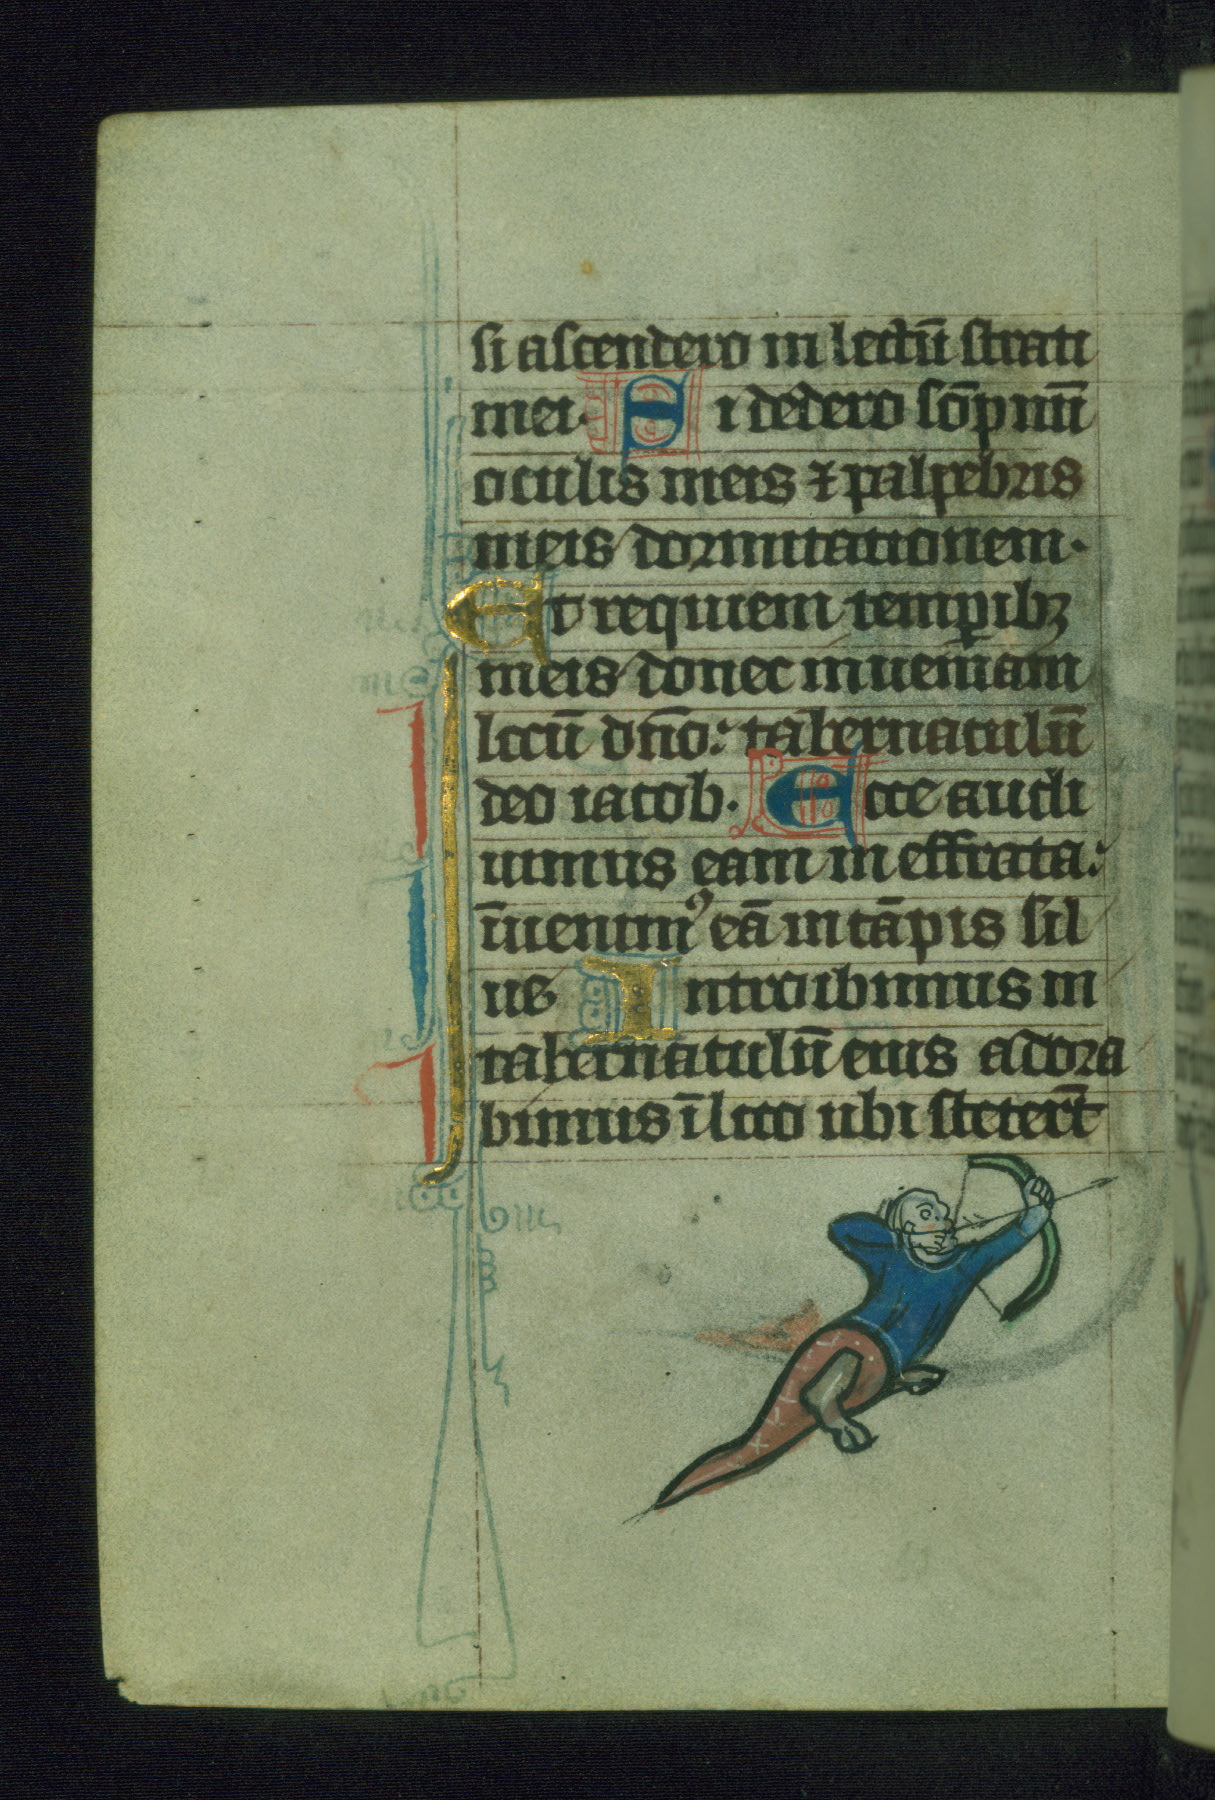 si ascendero in lectū strati
mei. Si dedero sōpnū
oculis meis ⁊ palpebris
meis dormitationem.
Et requiem temꝑibꝫ
meis donec inueniam
locū dn̄o: tabernaculū
deo iacob. Ecce audi
uimus eam in effrata:
īuenimꝰ eā in cāpis sil
ue Introibimus in
tabernaculū eius adora
bimus ī loco ubi steterūt